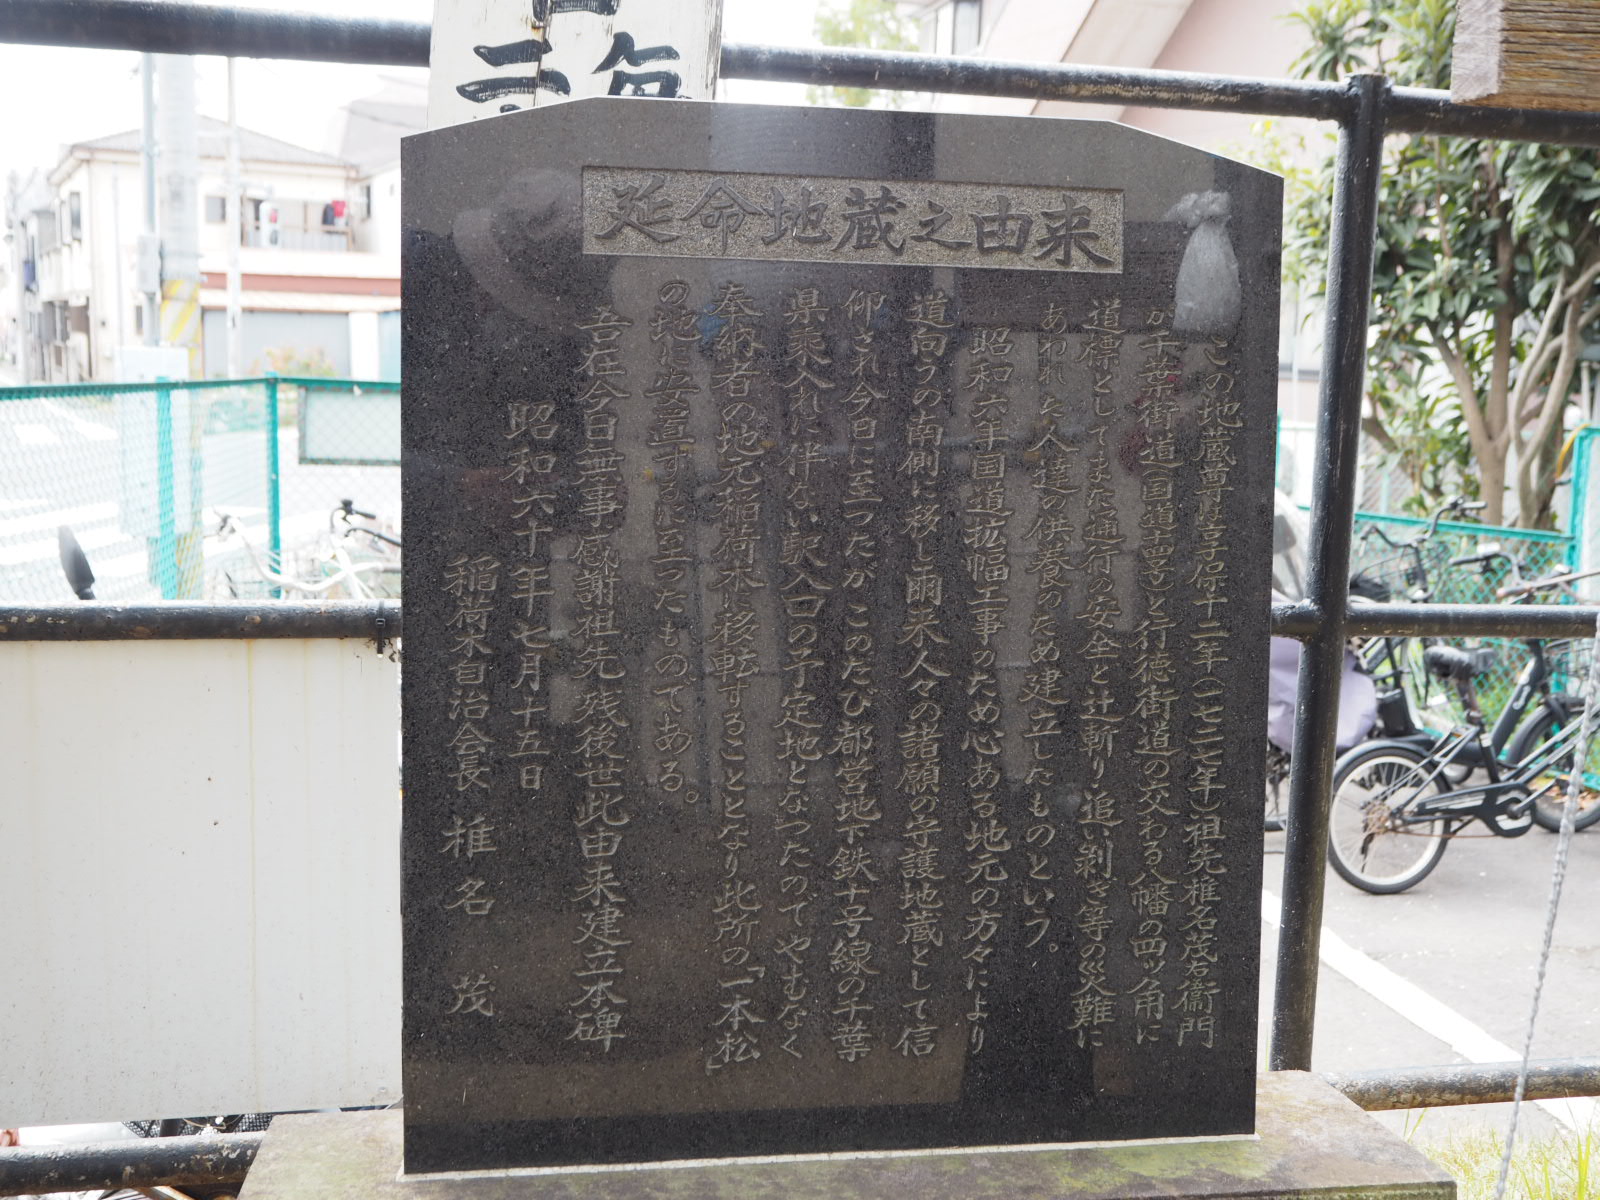 延命地蔵之由来
この地蔵尊は享保十二年(一七二七年)祖先椎名茂右衞門
が千葉街道(国道十四号)と行徳街道の交わる八幡の四ッ角に
道標としてまた通行の安全と辻斬り追い剥ぎ等の災難に
あわれた人達の供養のため建立したものという。
昭和六年国道拡幅工事のため心ある地元の方々により
道向うの南側に移し爾来人々の諸願の守護地蔵として信
仰され今日に至つたがこのたび都営地下鉄十号線の千葉
県乗入れに伴ない駅入口の予定地となつたのでやむなく
奉納者の地元稲荷木に移転することとなり此所の「一本松」
の地に安置するに至つたものである。
吾在今日無事感謝祖先残後世此由来建立本碑
昭和六十年七月十五日
稲荷木自治会長 椎名 茂